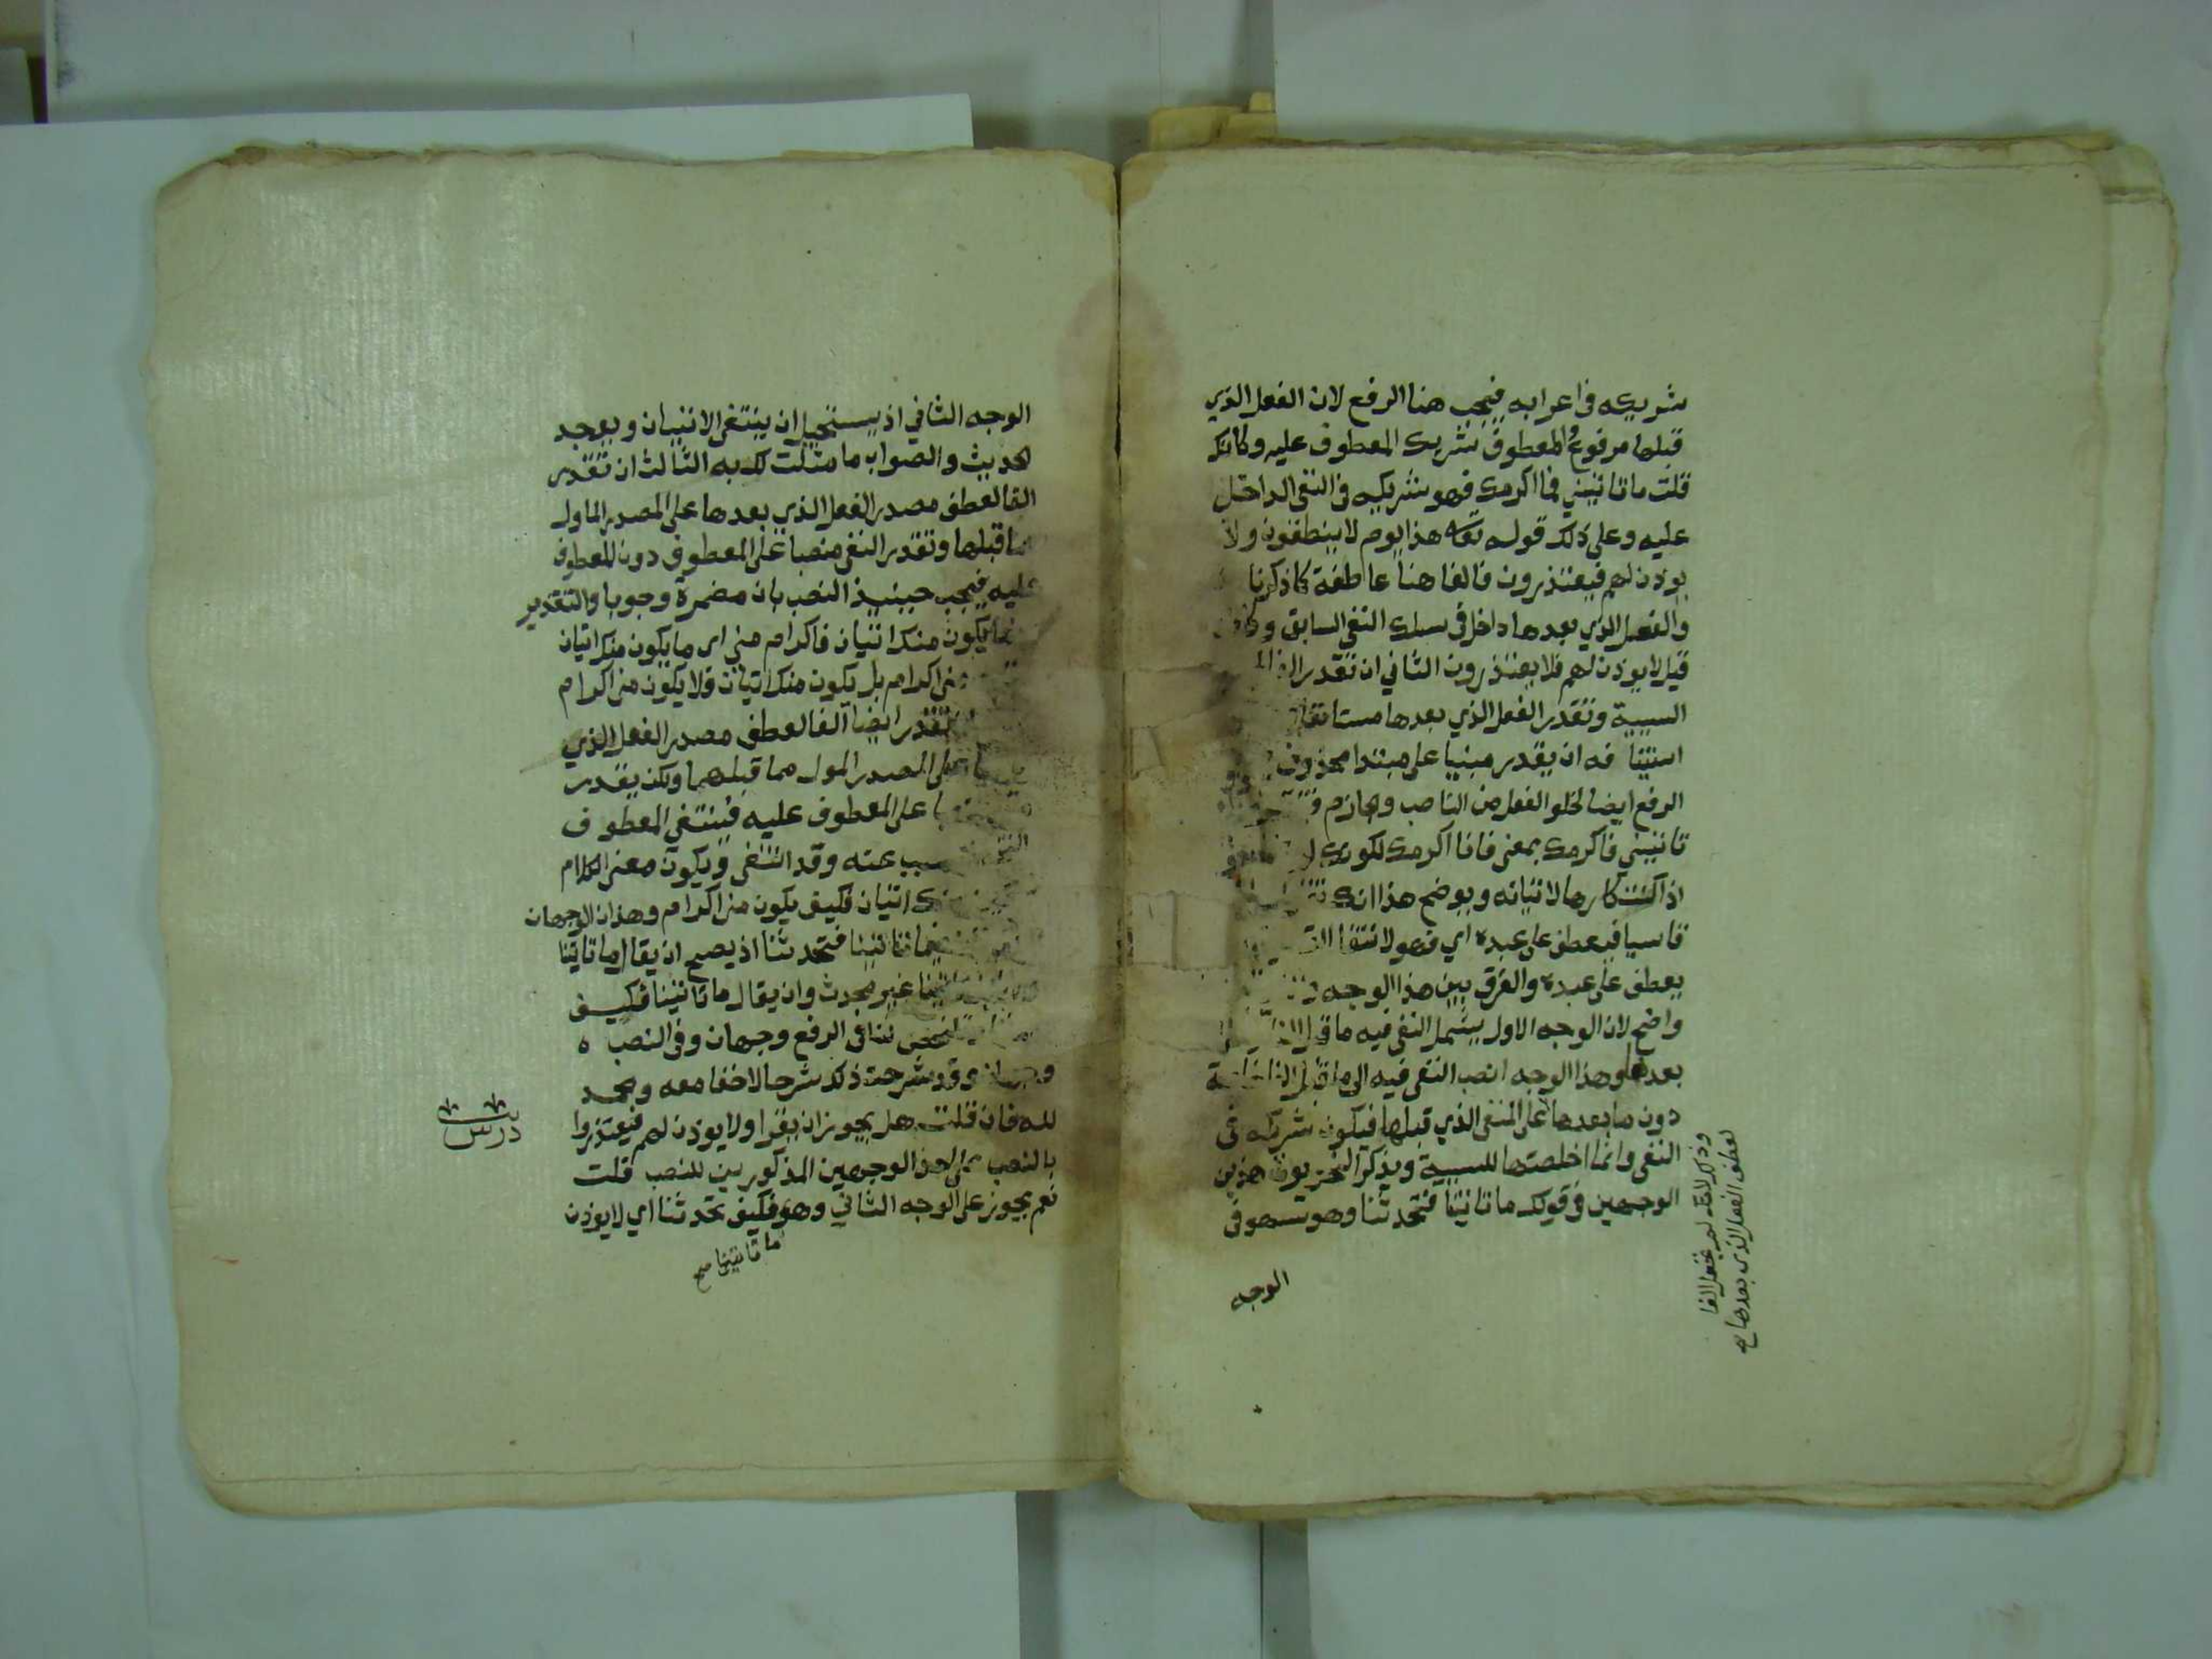 شريكه في اعرابه فيجب هنا الرفع لان الفعل الذي
قبلها مرفوع والمعطوف شريك المعطوف عليه وكانك
قلت ما تاتيني فما اكرمك فهو شريكه في النفي الداخل
عليه وعلى ذلك قوله تعا هذا يوم لا ينطقون ولا
يوذن لهم فيعتذرون فالفا هنا عاطفة كما ذكرنا
والفعل الذي بعدها داخل في سلك النفي السابق وكانه
قيل لا يوذن لهم فلا يعتذرون الثاني ان تقدر الفا
السببية وتقدر الفعل الذي بعدها مستانفا
استينا فه ان يقدر مبنيا على مبتدا محذوف
الرفع ايضا لخلو الفعل من الناصب والجازم
تاتيني فاكرمك بمعنى فانا اكرمك لكونك
اذا كنت كارها لاتيانه ويوضح هذا انك
قاسيا فيعطف على عبده اي فهو لانتفا
يعطف على عبده والفرق بين هذا الوجه
واضح لان الوجه الاول يشمل النفي فيه ما قبل الفا
بعدها وهذا الوجه انصب النفي فيه الى ما قبل الفا خاصة
دون ما بعدها على المنفي الذي قبلها فيكون شريكه في
النفي وانما اخلصتها للسببية ويذكر النحويون هذين
الوجهين في قولك ما تاتينا فتحدثنا وهو سهو في
وذلك لانك لم تجعل الفا
لعطف الفعل الذي بعدها صح
الوجه
الوجه الثاني اذ يستحيل ان ينتفي الاتيان ويوجد
الحديث والصواب ما مثلت لك به الثالث ان تقدر
الفا لعطف مصدر الفعل الذي بعدها على المصدر الماول
مما قبلها وتقدر النفي منصبا على المعطوف دون المعطوف
عليه فيجب حينيذ النصب بان مضمرة وجوبا والتقدير
ما يكون منك اتيان فاكرام مني اي ما يكون منك اتيان
مني اكرام بل يكون منك اتيان ولا يكون مني اكرام
تقدر ايضا الفا لعطف مصدر الفعل الذي
على المصدر المول مما قبلهما ولكن يقدر
على المعطوف عليه فينتفي المعطوف
سبب عنه وقد انتفى ويكون معنى الكلام
اتيان فكيف يكون مني اكرام وهذان الوجهان
ما تاتينا فتحدثنا اذ يصح ان يقال ما تاتينا
غير محدث وان يقال ما تاتينا فكيف
لنا في الرفع وجهان وفي النصب
وقد شرحت ذلك شرحا لا خفا معه وبحمد
لله فان قلت هل يجوز ان يقرا ولا يوذن لهم فيعتذروا
بالنصب على احد الوجهين المذكورين للنصب قلت
نعم يجوز على الوجه الثاني وهو فكيف تحدثنا اي لا يوذن
ما تاتينا صح
درس